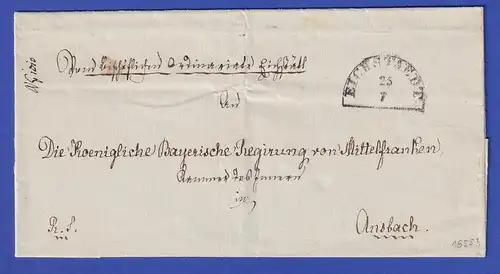 Vom bischöflichen Ordinariate Eichstätt
EICHSTAEDT.
25
7
An
Die Koenigliche Bayerische Regirung von Mittelfranken,
Kammer des Innern
in
R. S.
Ansbach.